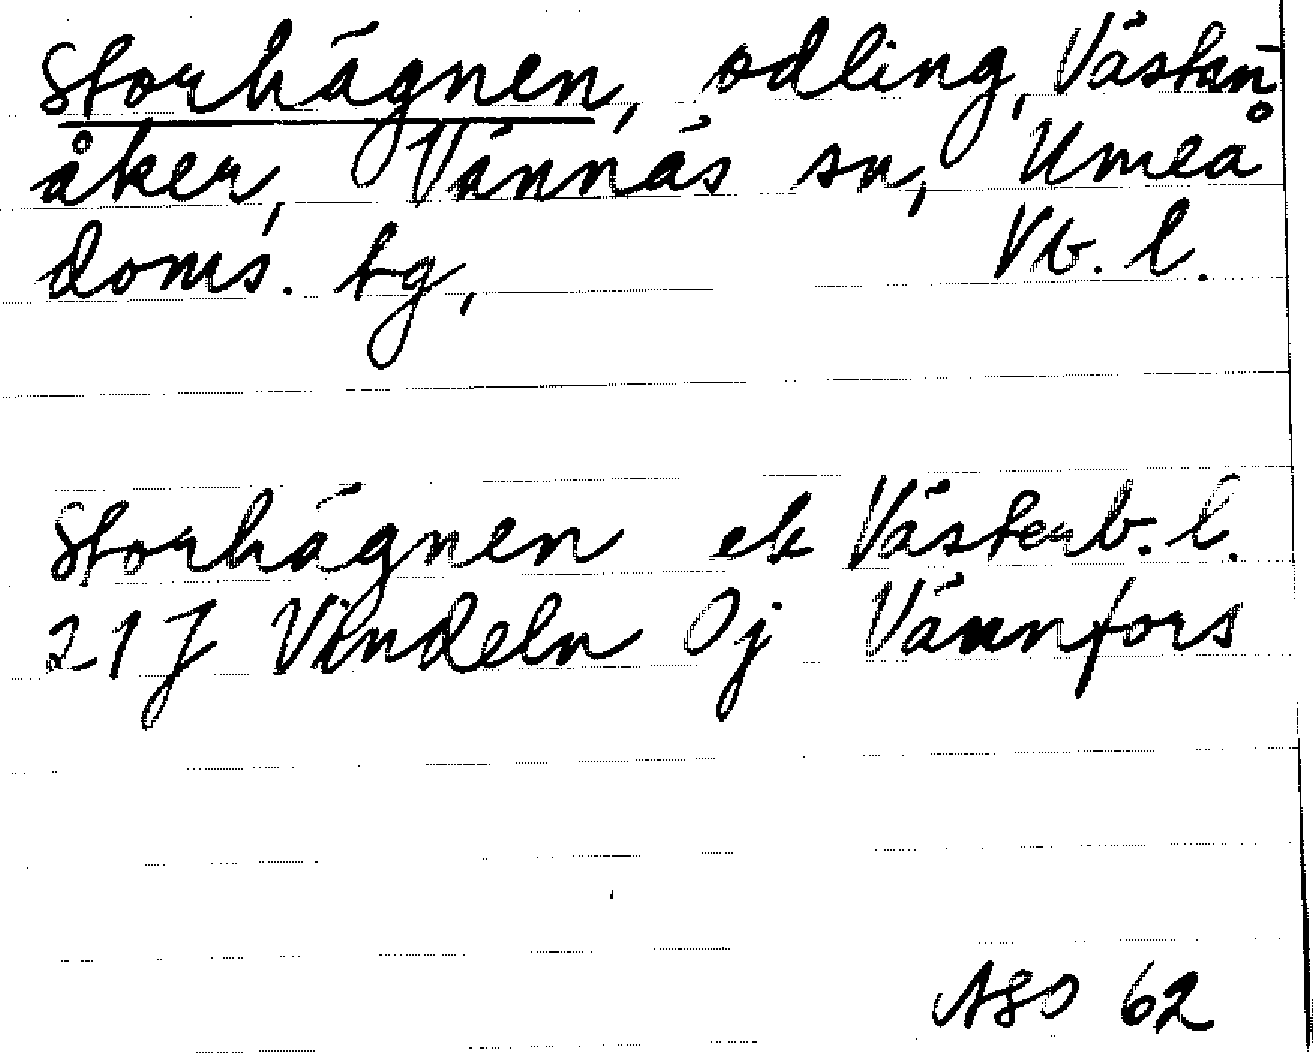 Storhägnen, odling, Västan-
åker, Vännäs sn, Umeå
doms. tg, Vb. l.
Storhägnen ek Västerb. l.
21J Vindeln 0j Vännfors
ASO 62